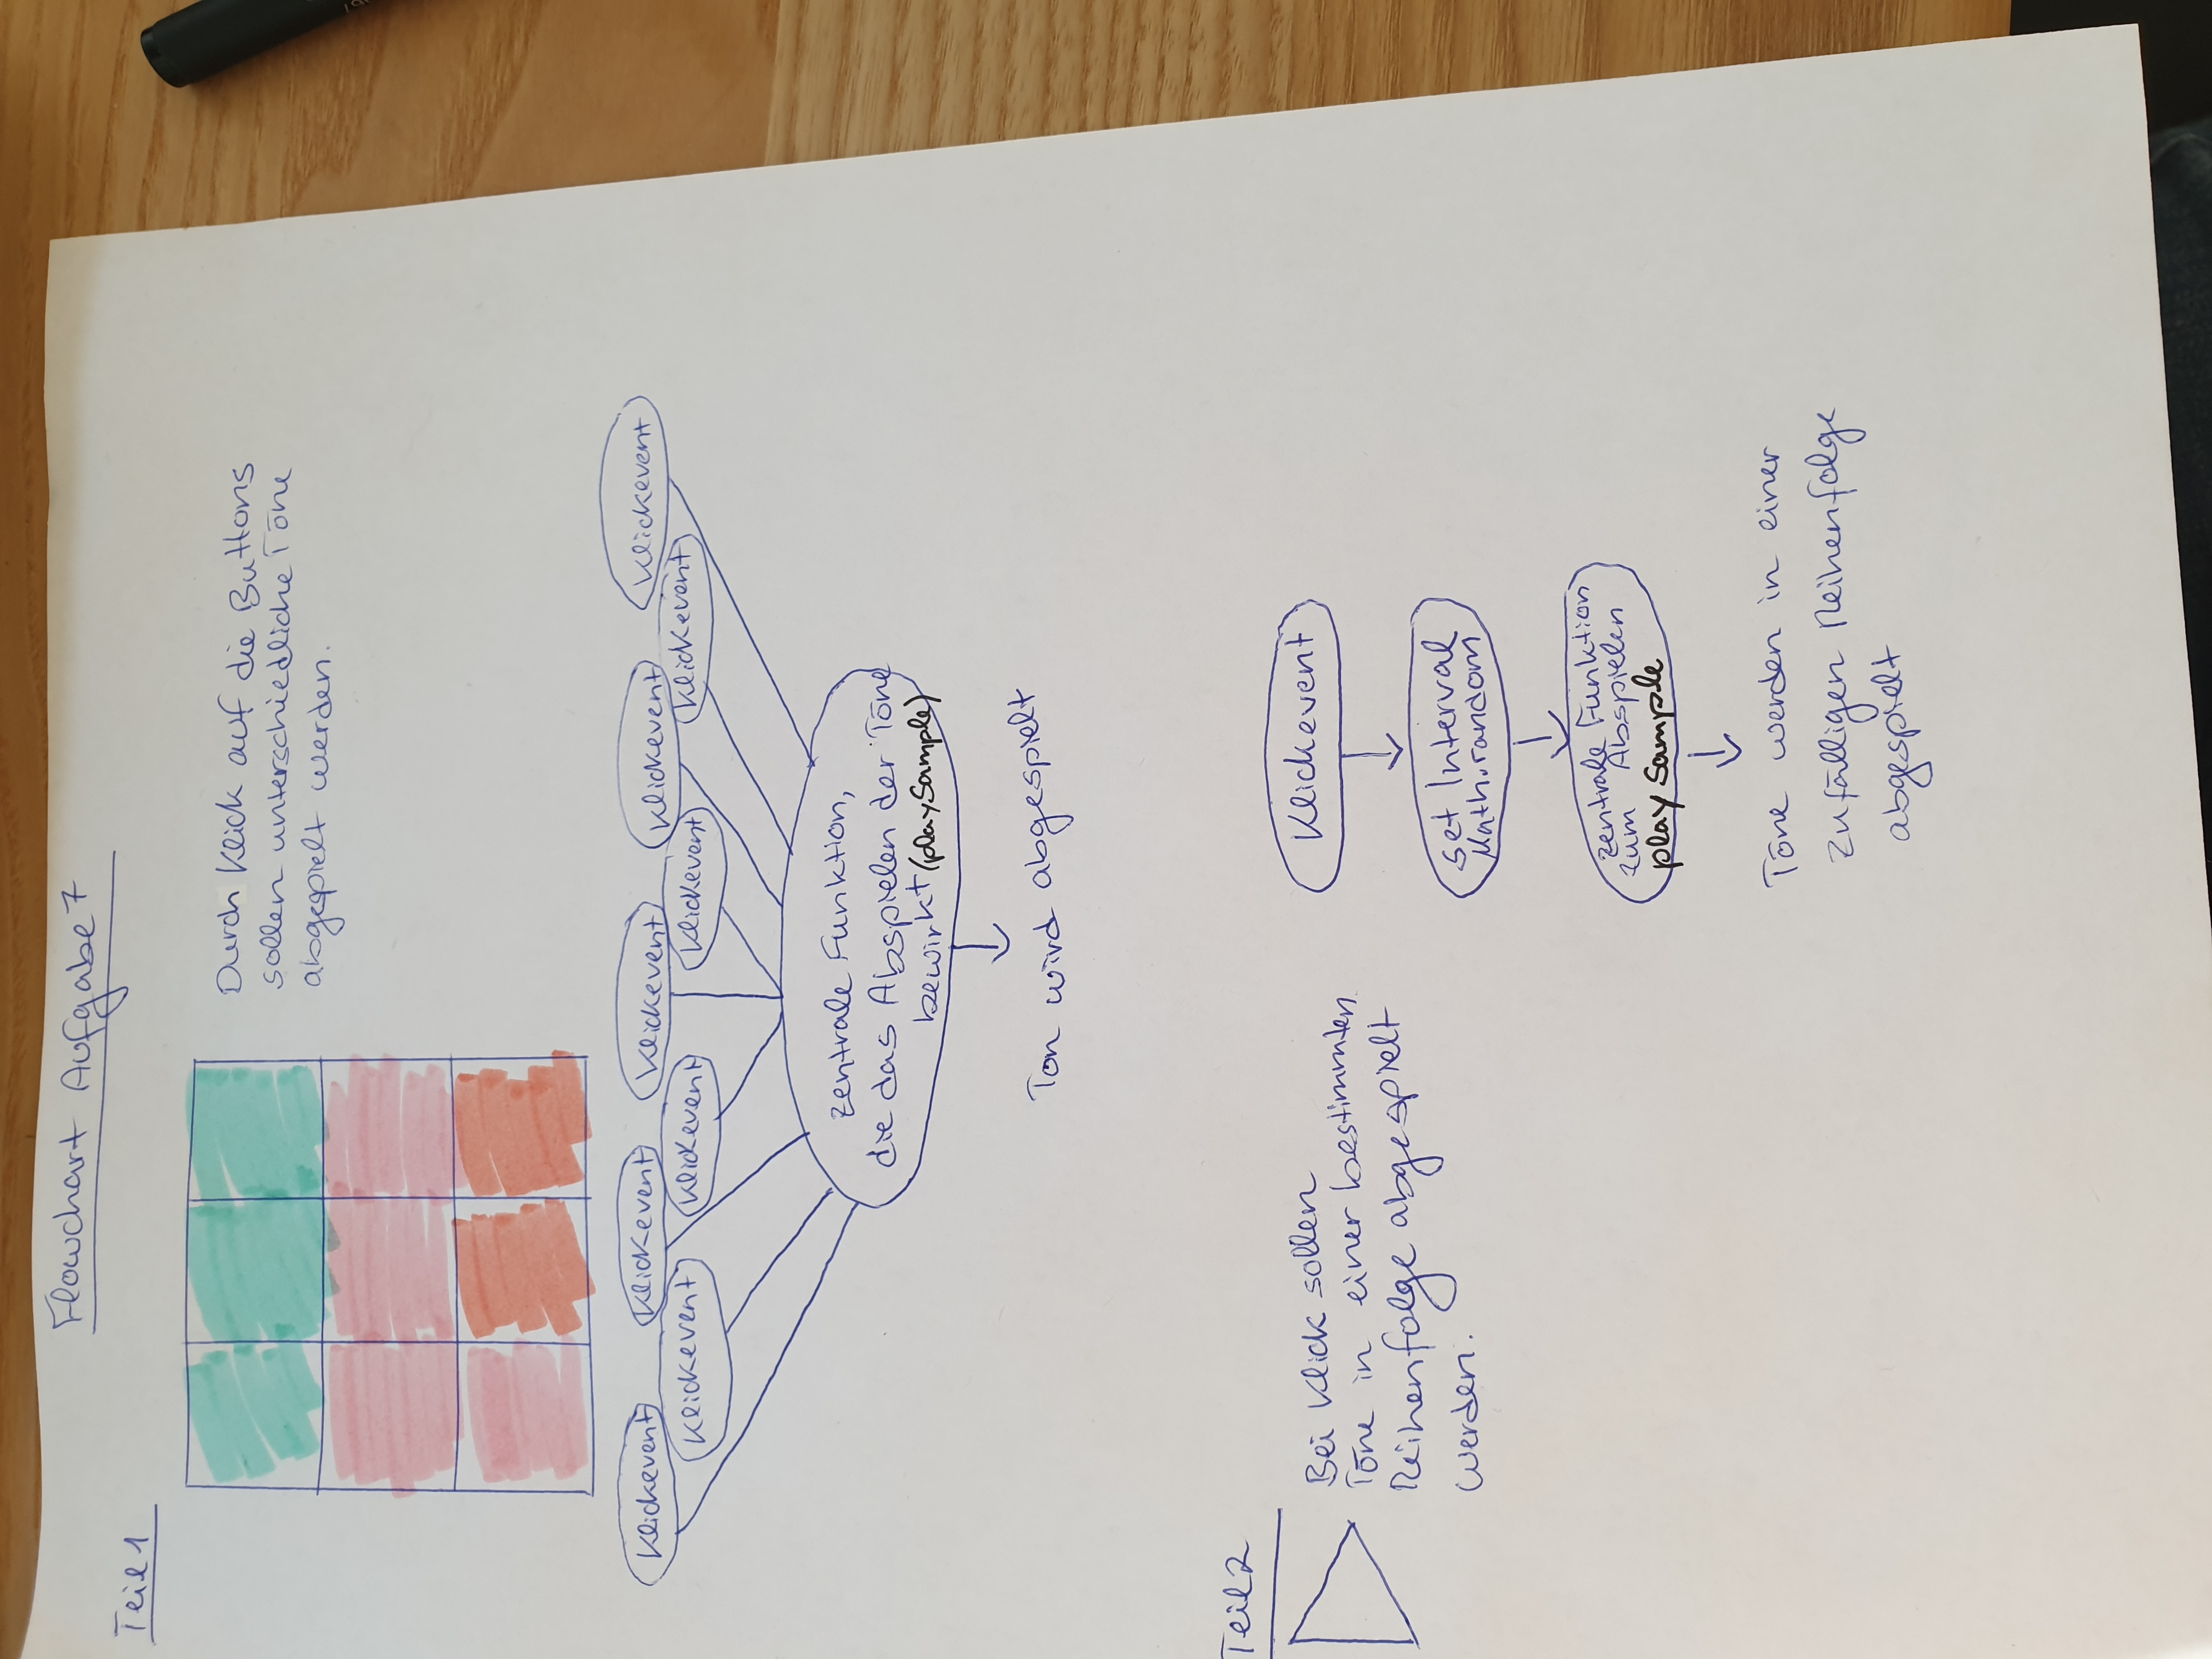 Flowchart Aufgabe 7
Teil 1
Durch Klick auf die Buttons
sollen unterschiedliche Töne
abgespielt werden.
Klickevent
Klickevent
Klickevent
Klickevent
Klickevent
Klickevent
Klickevent
Klickevent
Klickevent
zentrale Funktion,
die das Abspielen der Töne
bewirkt (playSample)
Ton wird abgespielt
Teil 2
Bei Klick sollen
Töne in einer bestimmten
Reihenfolge abgespielt
werden.
Klickevent
set Interval
Math.random
zentrale Funktion
zum Abspielen
play Sample
Töne werden in einer
zufälligen Reihenfolge
abgespielt